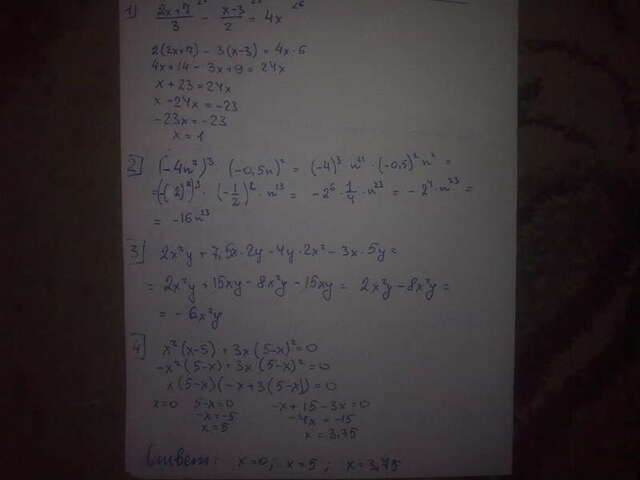 1) (2x+7)/3 - (x-3)/2 = 4x
2(2x+7) - 3(x-3) = 4x·6
4x+14 - 3x+9 = 24x
x+23 = 24x
x-24x = -23
-23x = -23
x = 1
2) (-4n⁷)³ · (-0,5n)² = (-4)³ · n²¹ · (-0,5)² n² =
=(-(2)²)³ · (-1/2)² · n²³ = -2⁶ · 1/4 · n²³ = -2⁴ · n²³ =
= -16n²³
3) 2x²y + 7,5x·2y - 4y·2x² - 3x·5y =
= 2x²y + 15xy - 8x²y - 15xy = 2x²y - 8x²y =
= -6x²y
4) x²(x-5) + 3x(5-x)² = 0
-x²(5-x) + 3x(5-x)² = 0
x(5-x)(-x+3(5-x)) = 0
x=0 5-x=0 -x+15-3x=0
-x=-5 -4x = -15
x=5 x = 3,75
Ответ: x=0; x=5; x=3,75